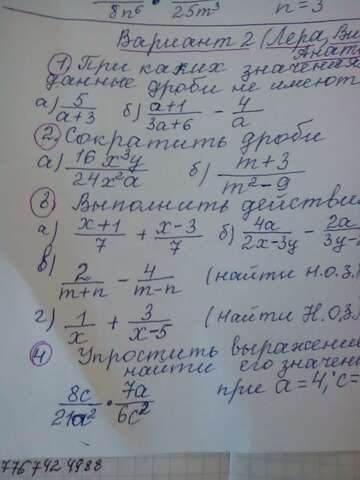 8n⁶ · 25m³ n=3
Вариант 2 (Лера,
① При каких значения
данные дроби не имеют
а) 5/(a+3) б) (a+1)/(3a+6) - 4/a
② Сократить дроби
а) 16x³y/24x²a б) (m+3)/(m²-9)
③ Выполнить действия
а) (x+1)/7 + (x-3)/7 б) 4a/(2x-3y) - 2a/
в) 2/(m+n) - 4/(m-n) (найти Н.О.З.)
г) 1/x + 3/(x-5) (найти Н.О.З.)
④ Упростить выражение
найти его значен
8c/21a² · 7a/6c² при a=4, c=
776 742 4988